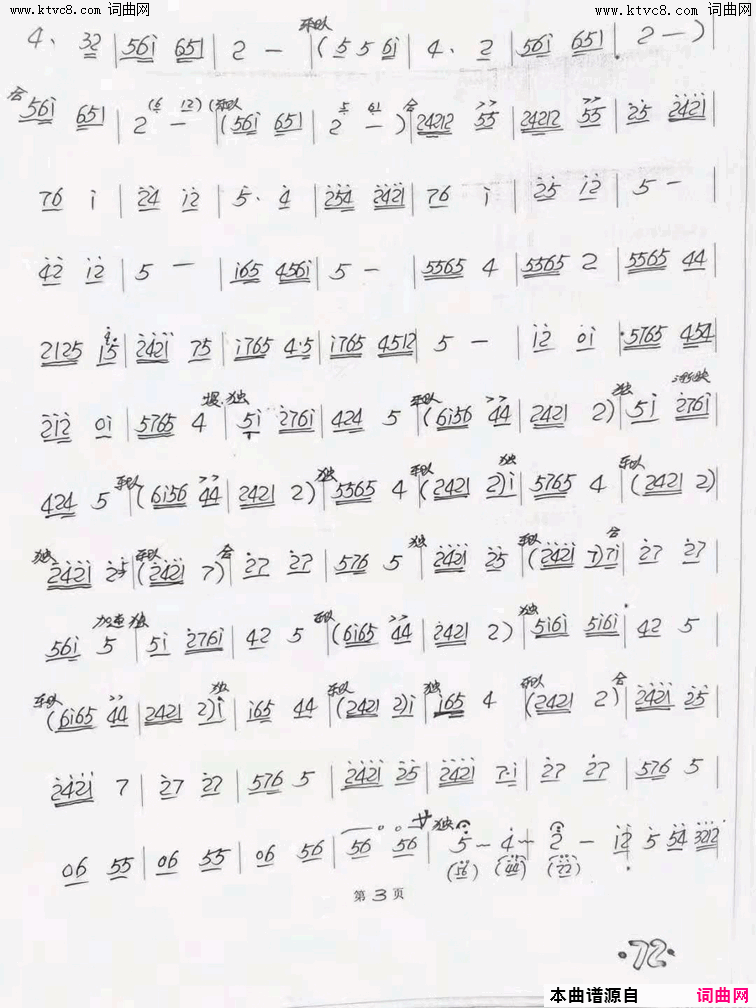 www.ktvc8.com 词曲网 www.ktvc8.com 词曲网
乐队
4· 32 | 56i 651 | 2 — | (5 5 6i | 4· 2 | 56i 651 | 2 —)
合 (6 12) (乐队 5 61 合 >> >>
56i 651 | 2 — | (56i 651 | 2 —) | 24212 55 | 24212 55 | 25 2421
76 i | 24 12 | 5· 4 | 254 2421 | 76 i | 25 12 | 5 —
42 12 | 5 — | i65 456i | 5 — | 5565 4 | 5565 2 | 5565 44
2125 15 | 2421 75 | i765 4·5 | i765 4512 | 5 — | 12 01 | 5765 454
慢 独 乐队 >> 独 渐快
212 0i | 5765 4 | 5i 276i | 424 5 | (6i56 44 | 2421 2) | 5i 276i
乐队 >> 独 乐队 独 乐队
424 5 | (6i56 44 | 2421 2) | 5565 4 | (2421 2)i | 5765 4 | (2421 2)
独 乐队 合 独 乐队 合
2421 25 | (2421 7) | 27 27 | 576 5 | 2421 25 | (2421 7)7i | 27 27
加速 独 乐队 >> 独
56i 5 | 5i 276i | 42 5 | (6i65 44 | 2421 2) | 5i6i 5i6i | 42 5
乐队 >> 独 乐队 独 乐队 合
(6i65 44 | 2421 2)i | i65 44 | (2421 2)i | i65 4 | (2421 2) | 2421 25
2421 7 | 27 27 | 576 5 | 2421 25 | 2421 7·i | 27 27 | 576 5
サ 独
06 55 | 06 55 | 06 56 | 56 56 | 5 ~ 4 ~ 2 — 12 5 54 3212
(56) (44) (22)
第 3 页
·72·
本曲谱源自 词曲网